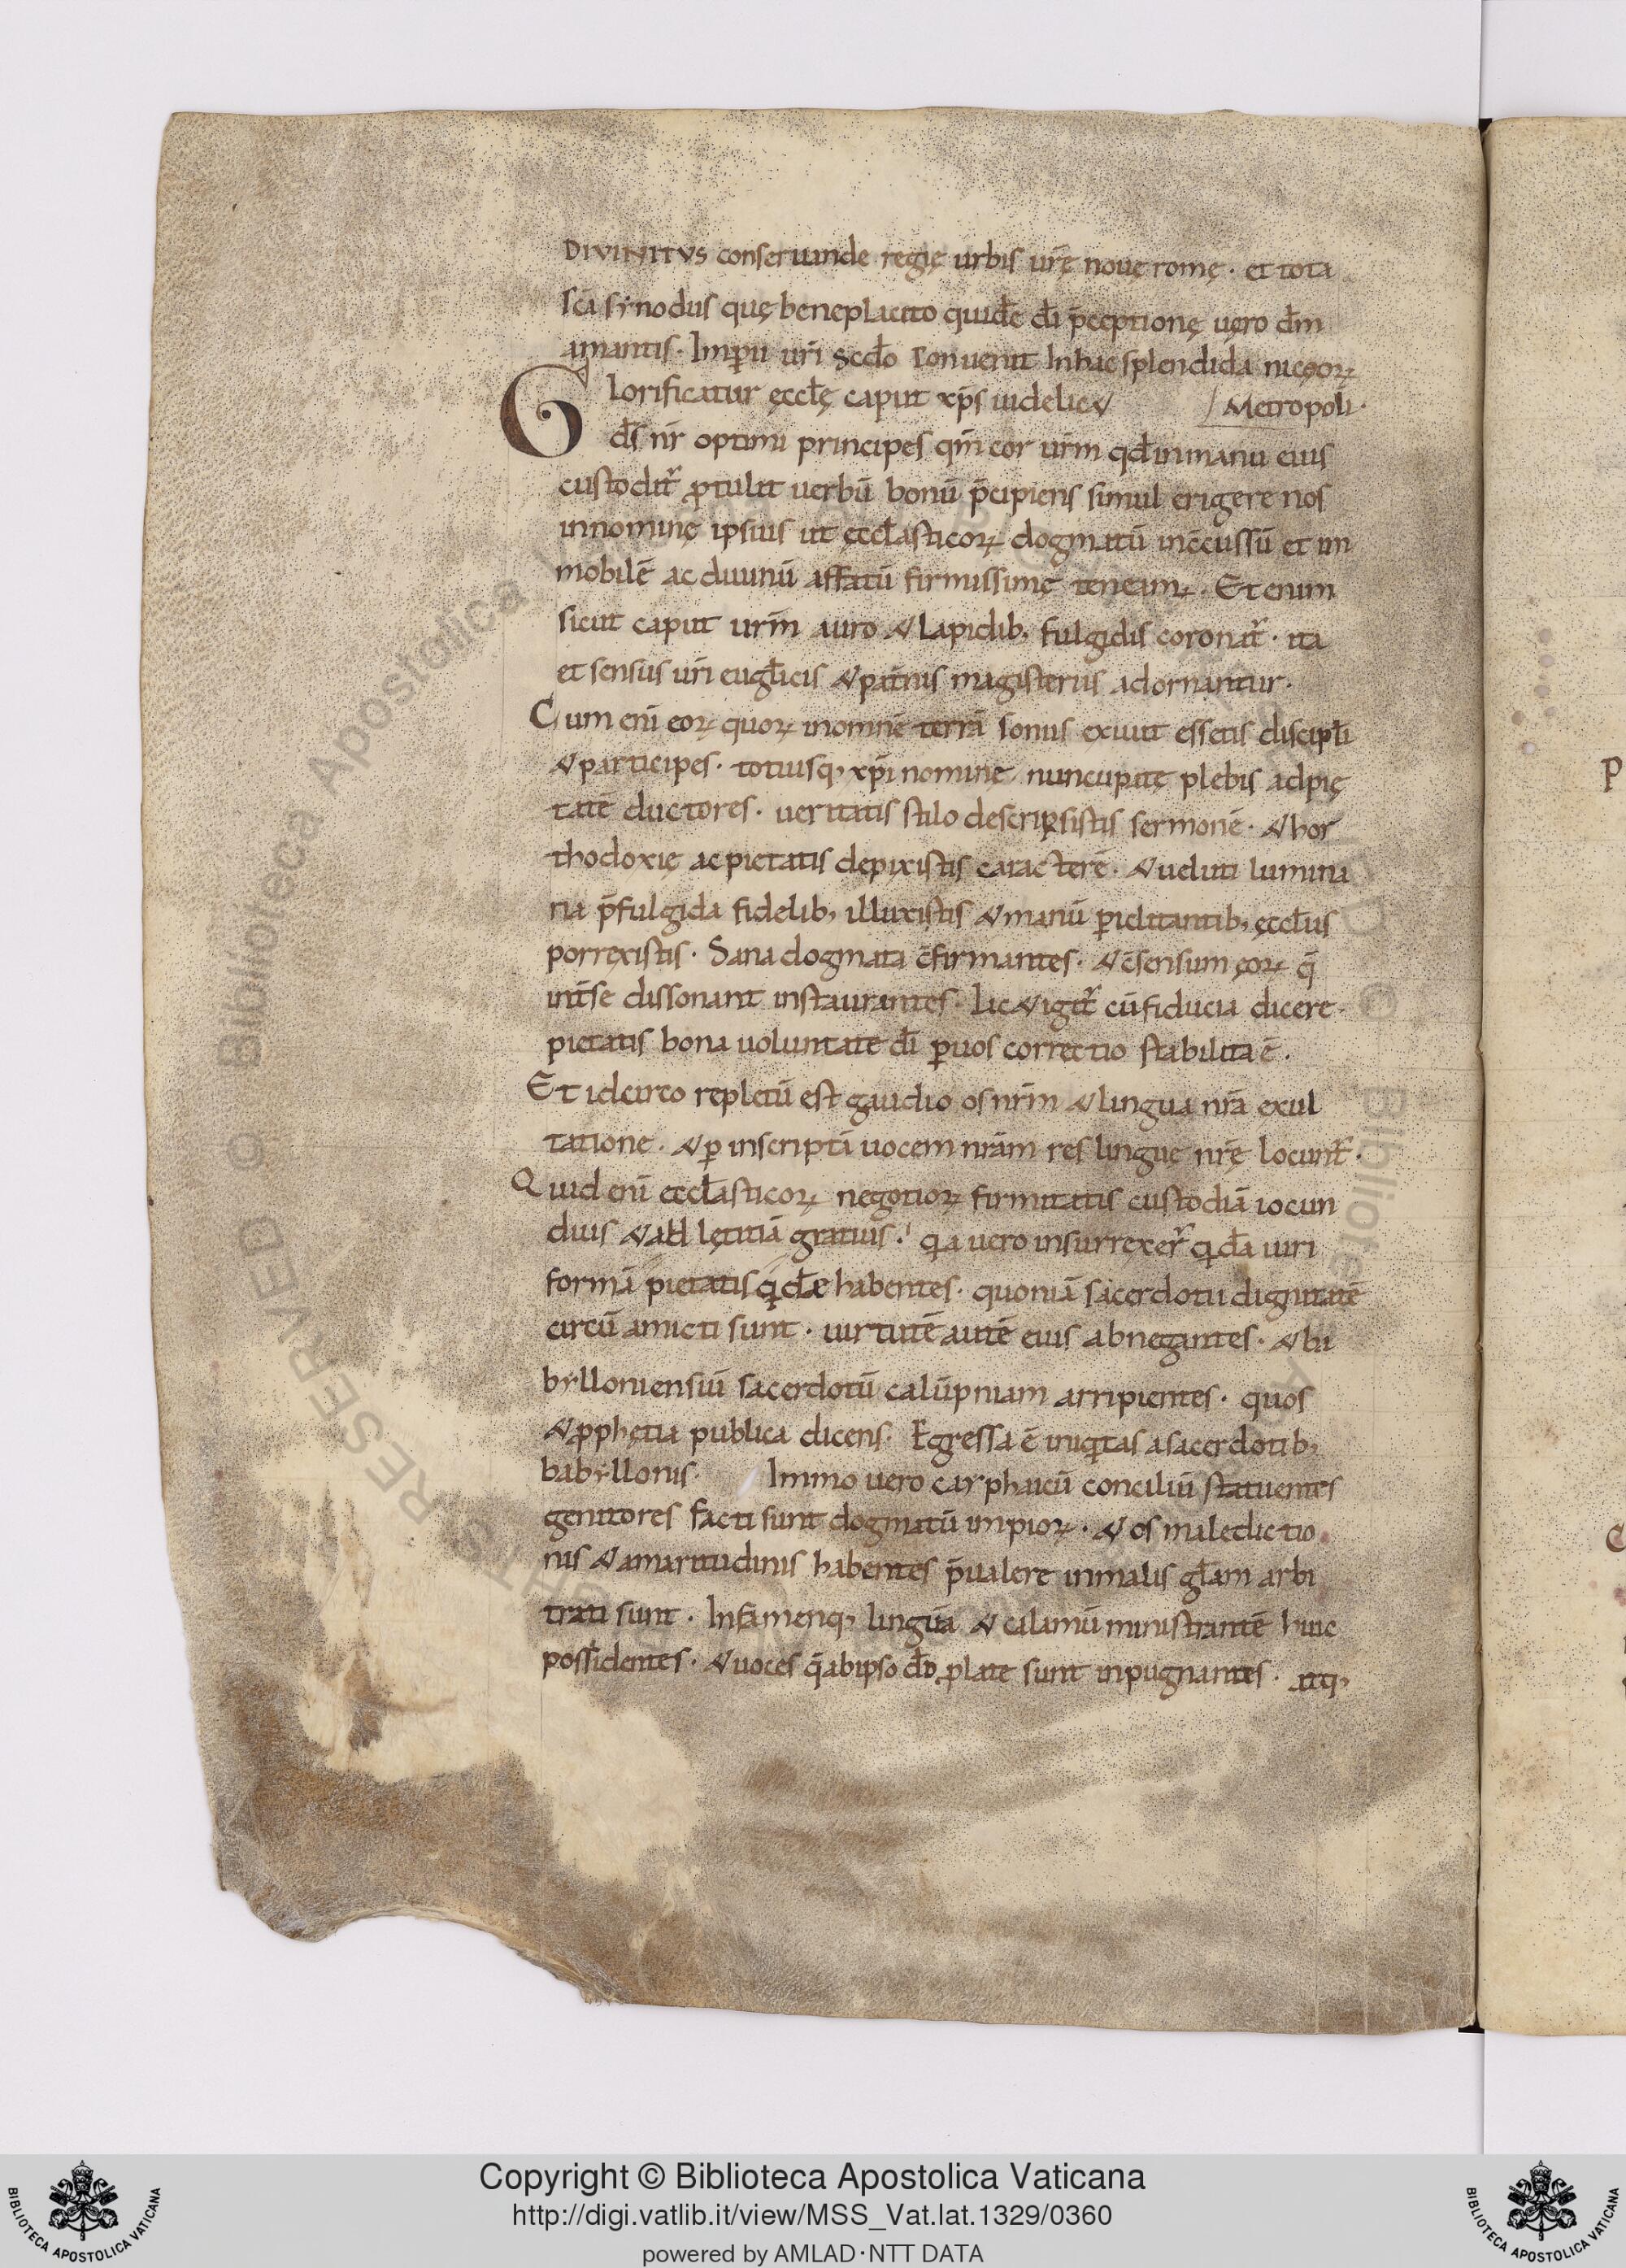 DIVINITVS conseruande regię urbis urę̄ nouę romę · et tota
sc̄a synodus quę beneplacito quidē dī p̄ceptionę uęro dm̄
amantis · Imp̄ii uri scdo conuenit Inhac splendida niceoꝝ
Glorificatur ęccłę caput xp̄s uidelic& / Metropoli ·
ds̄ nr̄ optimi principes qm̄ cor urm̄ qđ inmanu eius
custodit᷑ ꝓtulit uerbū bonū p̄cipiens simul erigere nos
innominę ipsius ut ęccłasticoꝝ dogmatū incc̄ussū et im
mobilē ac diuinū affatū firmissimę teneamꝰ · Et enim
sicut caput urm̄ auro & lapidib; fulgidis coronat᷑ · ita
et sensus uri eugłicis & pat̄nis magisteriis adornantur ·
Cum eni eoꝝ quoꝝ inomnē terrā sonus exiuit essetis discipłi
& participes · totiusq; xp̄i nominę nuncupatę plebis adpię
tatē ductores · ueritatis stilo descripsistis sermonē · & hor
thodoxię ac pietatis depixistis caracterē · & ueluti lumina
ria p̄fulgida fidelib; illuxistis & manū ꝑiclitantib; ęccłiis
porrexistis · Sana dogmata c̄firmantes · & c̄sensum ęoꝝ q̄
int̄se dissonant instaurantes · lic& igit᷑ cū fiducia dicere ·
pietatis bona uoluntate dī ꝑ uos correctio stabilita ē ·
Et idcirco repletū est gaudio os nrm̄ & lingua nrā exul
tatione · & ꝑ inscripti uocem nrām res linguę nrę̄ locunt᷑ ·
Quid eni ęccłasticoꝝ negotioꝝ firmitatis custodiā iocun
dius & ad lętitiā gratius? qa uero insurrexer᷑ qdā uiri
formā pietatis qdē habentes · quoniā sacerdotii dignitatē
circū amicti sunt · uirtutē autē eius abnegantes · & ba
bylloniensiū sacerdotū calūpniam arripientes · quos
& ꝓphętia publica dicens · Egressa ē iniqtas asacerdotib;
babyllonis · Immo uero cayphaicū conciliū statuentes
genitores facti sunt dogmatū impioꝝ · & os maledictio
nis & amaritudinis habentes p̄ualere inmalis głam arbi
trati sunt · Infamenq; linguā & calamū ministrantē huic
possidentes · & uoces q̄ abipso do ꝓlate sunt inpugnantes · atq;
Copyright © Biblioteca Apostolica Vaticana
http://digi.vatlib.it/view/MSS_Vat.lat.1329/0360
powered by AMLAD·NTT DATA
BIBLIOTECA APOSTOLICA VATICANA
BIBLIOTECA APOSTOLICA VATICANA